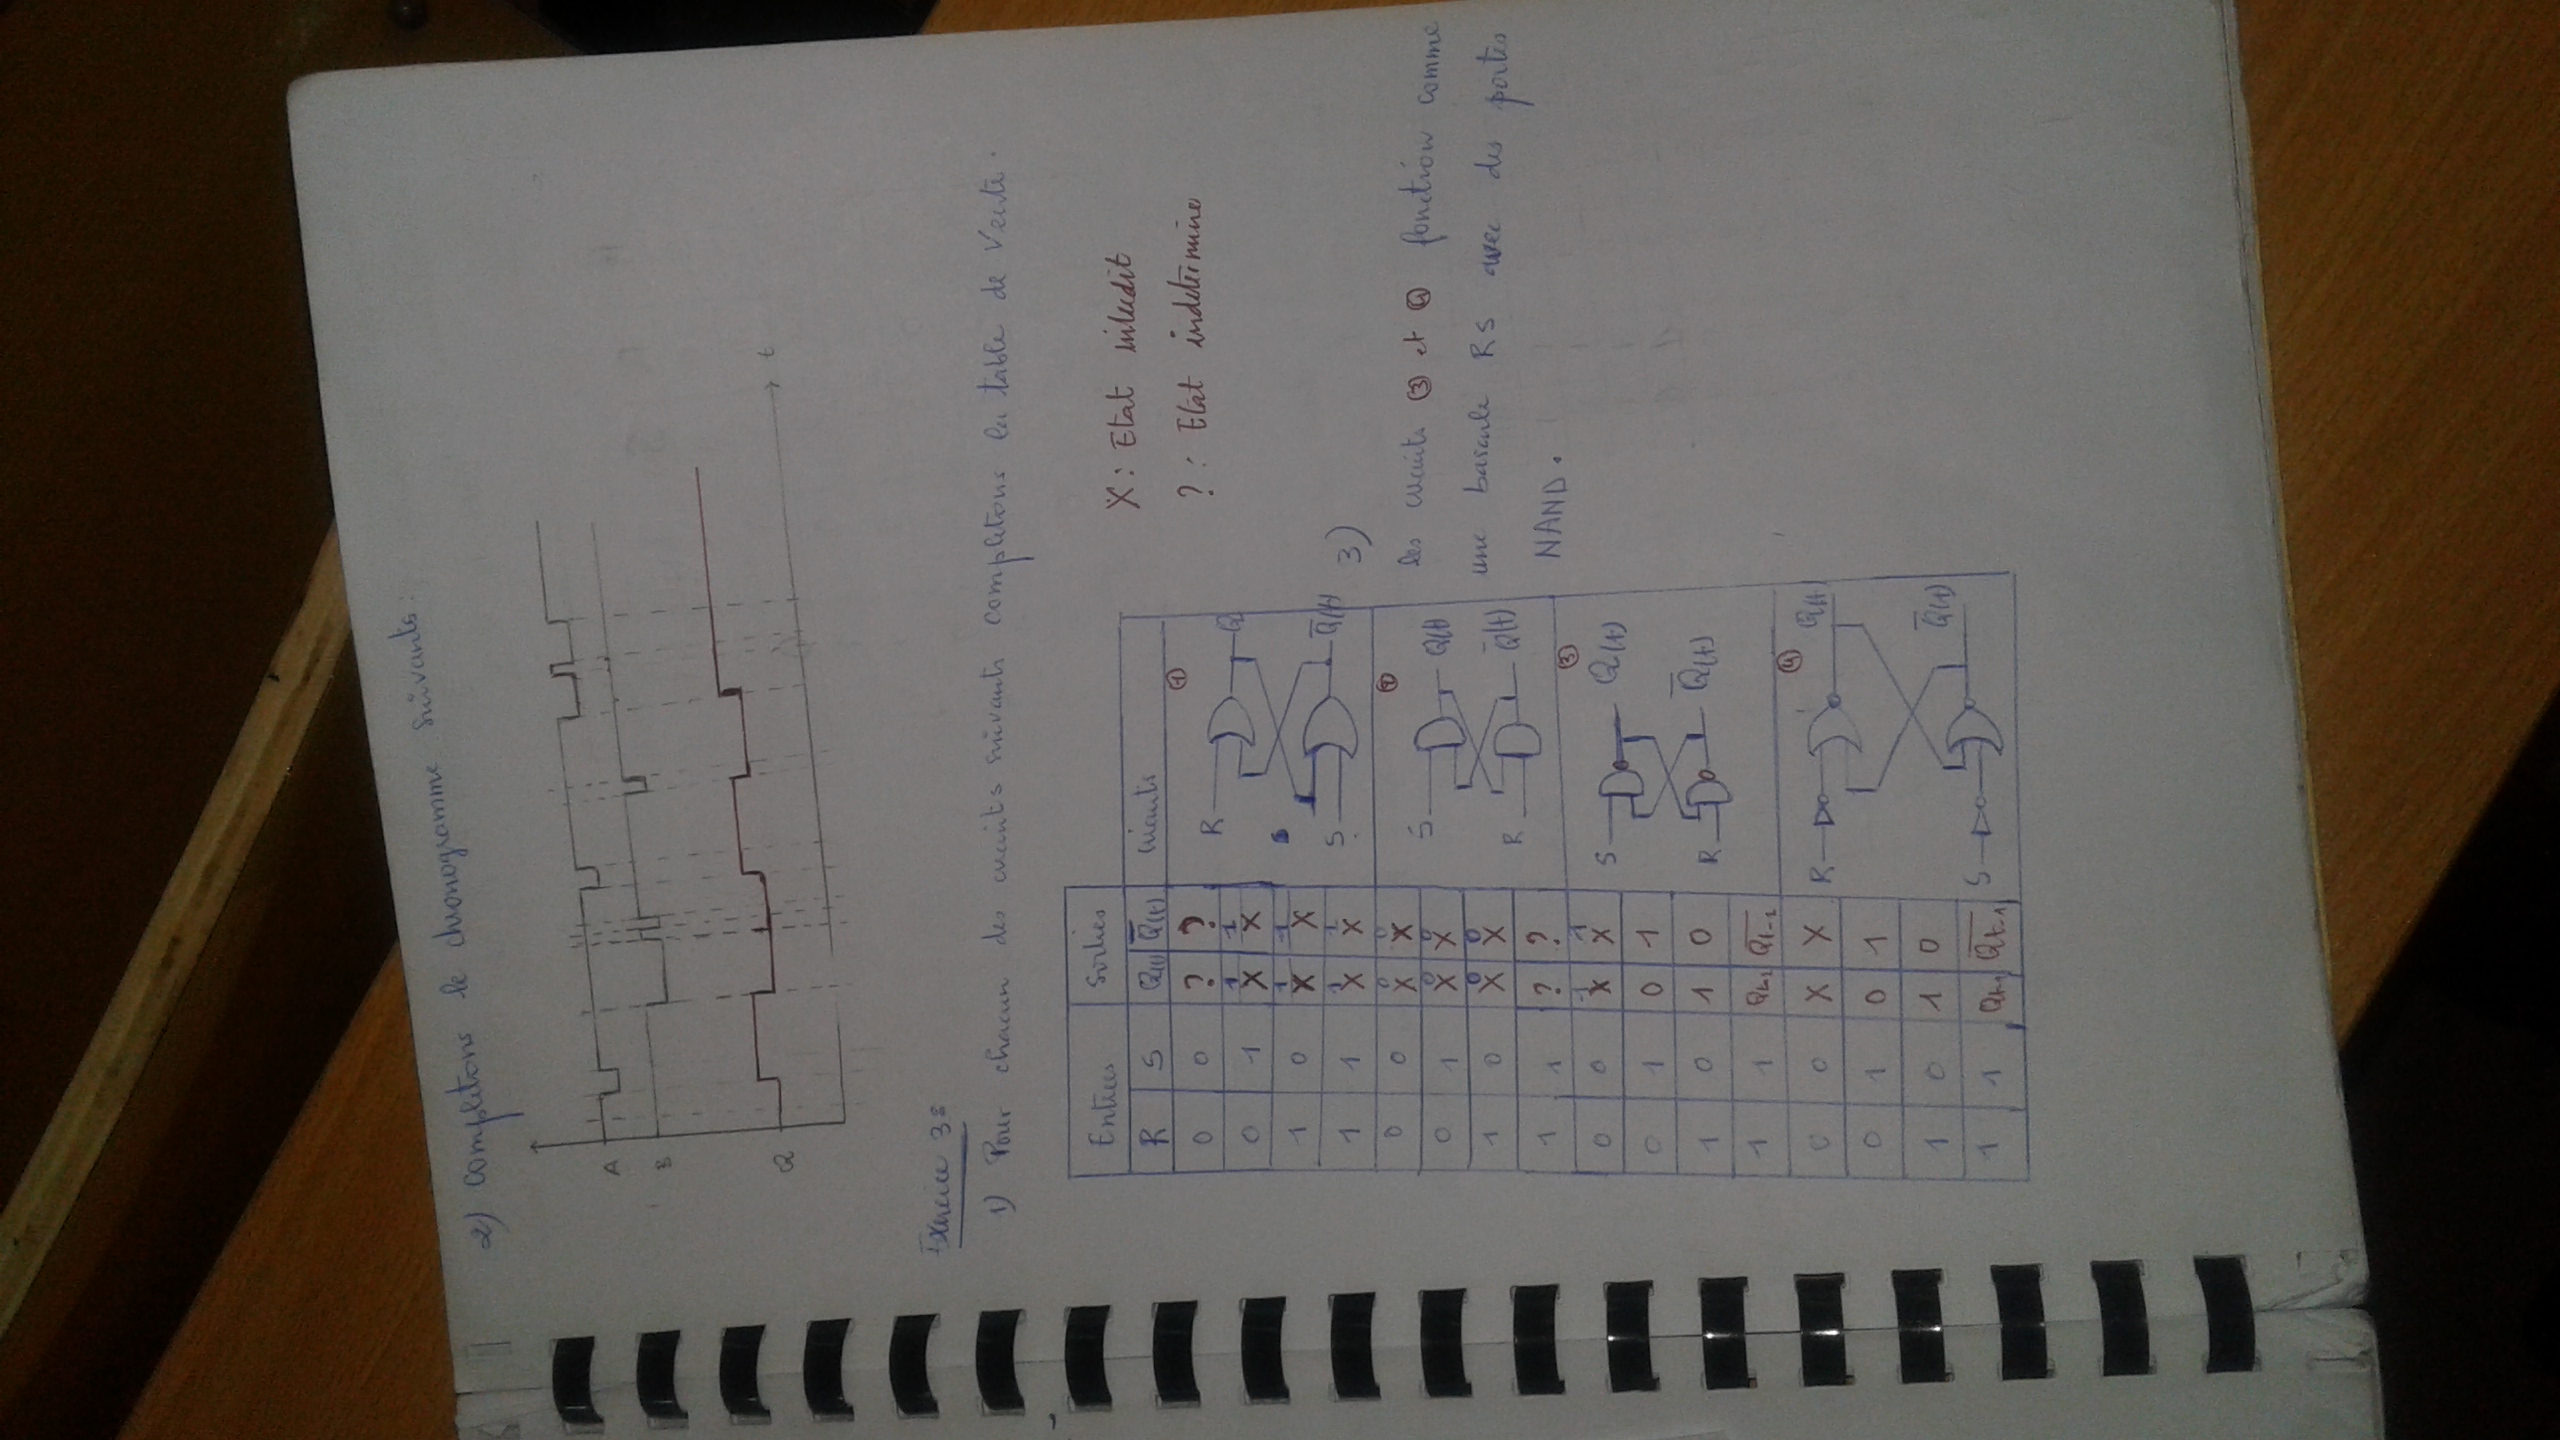 2) Completons le chronogramme suivants :
A
B
Q
t
Exercice 3 :
1) Pour chacun des circuits suivants completons la table de Verite.
Entrees Sorties
R S Q(t) Q̅(t) circuits
0 0 ? ?
0 1 1 X 1 X
1 0 1 X 1 X
1 1 1 X 1 X
① R Q
S Q̅(t)
0 0 0 X 0 X
0 1 0 X 0 X
1 0 0 X 0 X
1 1 ? ?
② S Q(t)
R Q̅(t)
0 0 1 X 1 X
0 1 0 1
1 0 1 0
1 1 Qt-1 Q̅t-1
③ S Q(t)
R Q̅(t)
0 0 X X
0 1 0 1
1 0 1 0
1 1 Qt-1 Q̅t-1
④ R Q(t)
S Q̅(t)
X : Etat interdit
? : Etat indetermine
3)
les circuits ③ et ④ fonction comme
une bascule RS avec des portes
NAND.